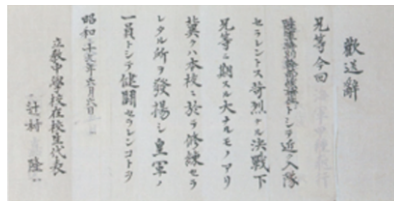 歡送辭
兄等今回
陸軍特別幹部候補生トシテ近ク入隊
セラレントス苛烈ナル決戰下
兄等ニ期スル大ナルモノアリ
冀クハ本校ニ於テ修練セラ
レタル所ヲ發揚シ皇軍ノ
一員トシテ健鬪セラレンコトヲ
昭和二十年六月六日
立教中學校在校生代表
辻村 隆